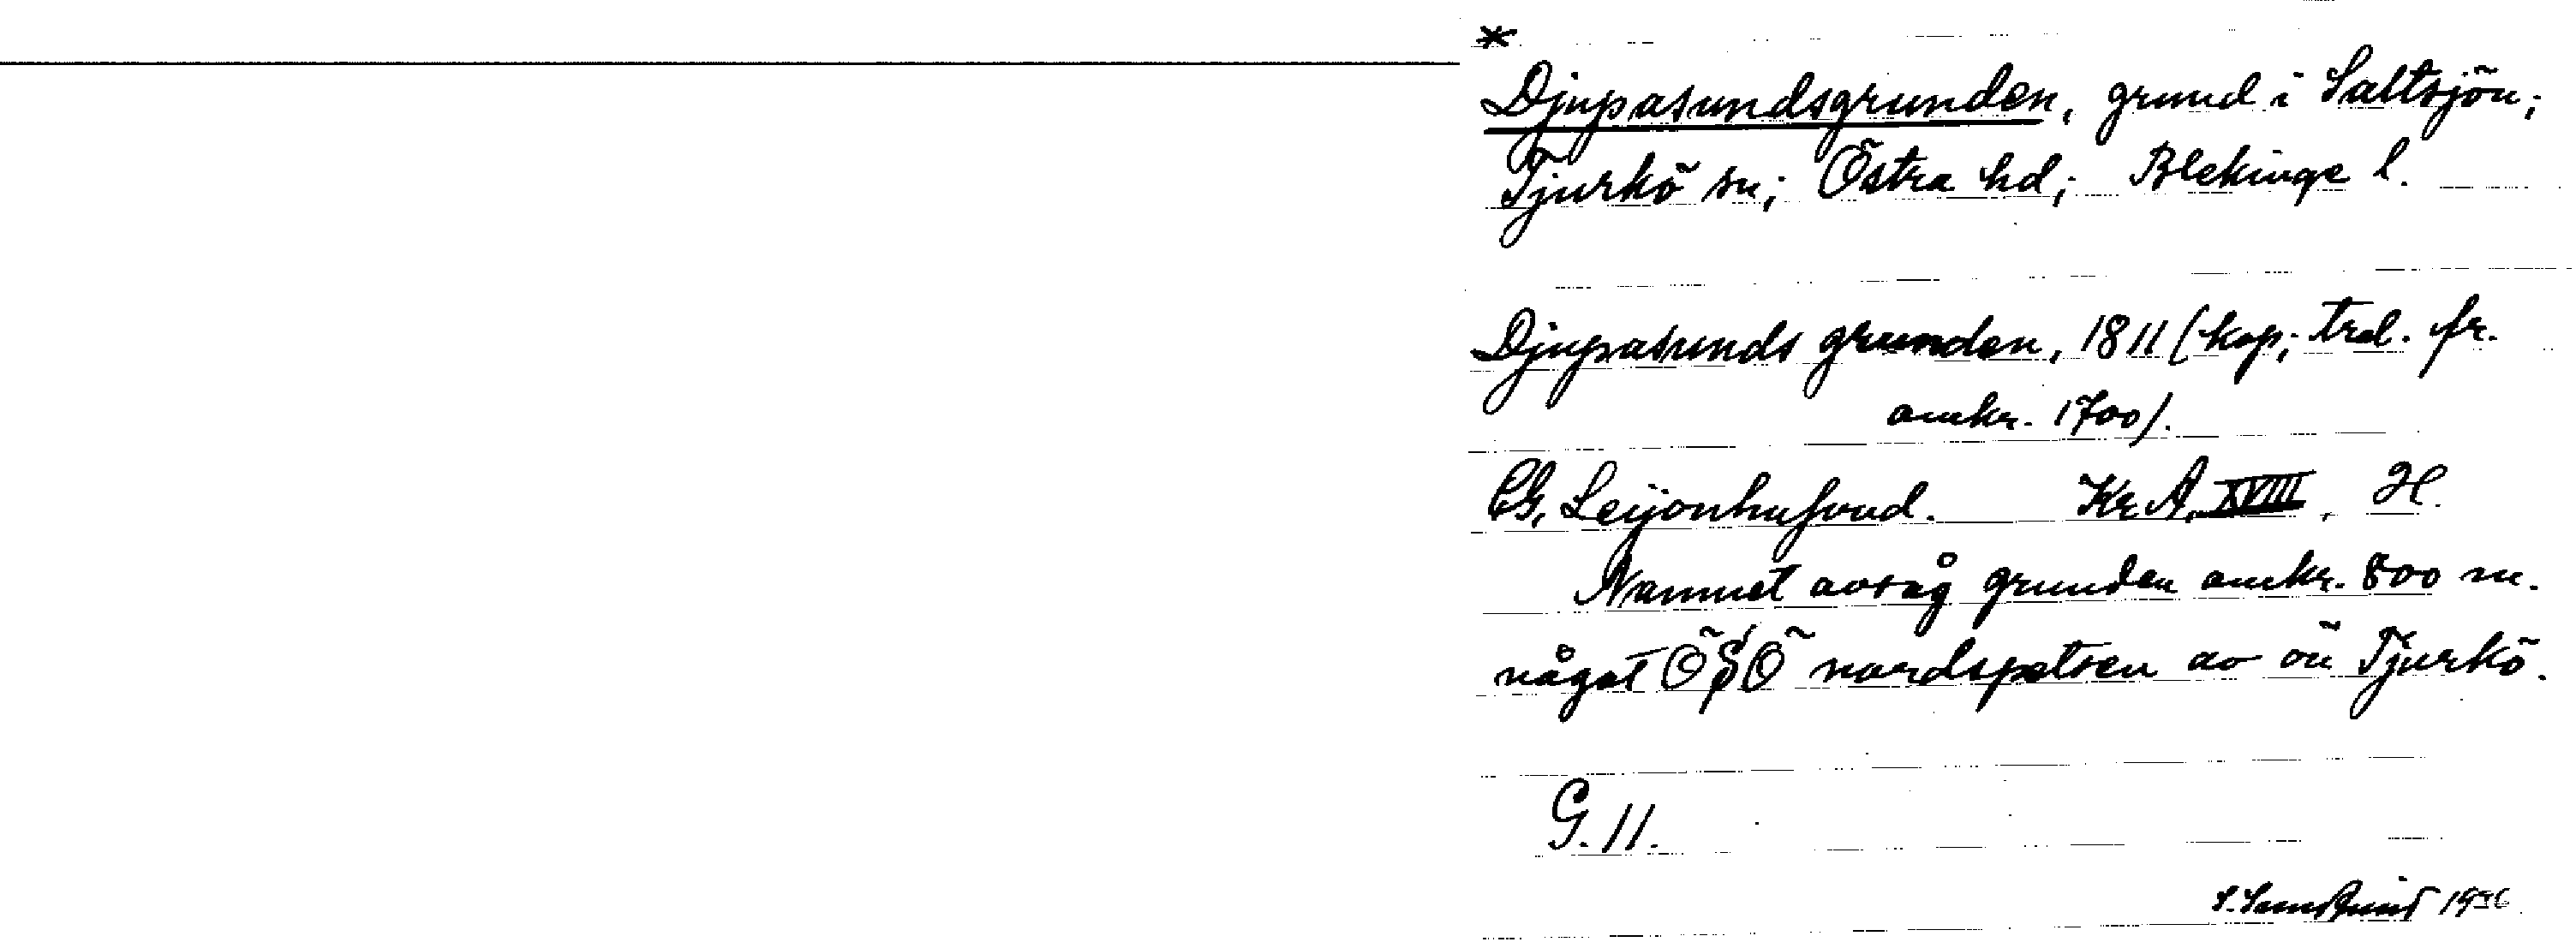 *
Djupasundsgrunden, grund i Saltsjön;
Tjurkö sn; Östra hd; Blekinge l.
Djupasunds grunden, 1811 (kop; trol. fr.
omkr. 1700).
CG. Leijonhufvud. Kr A, XVIII, H.
Namnet avsåg grunden omkr. 800 m.
något ÖSÖ nordspetsen av ön Tjurkö.
G. 11.